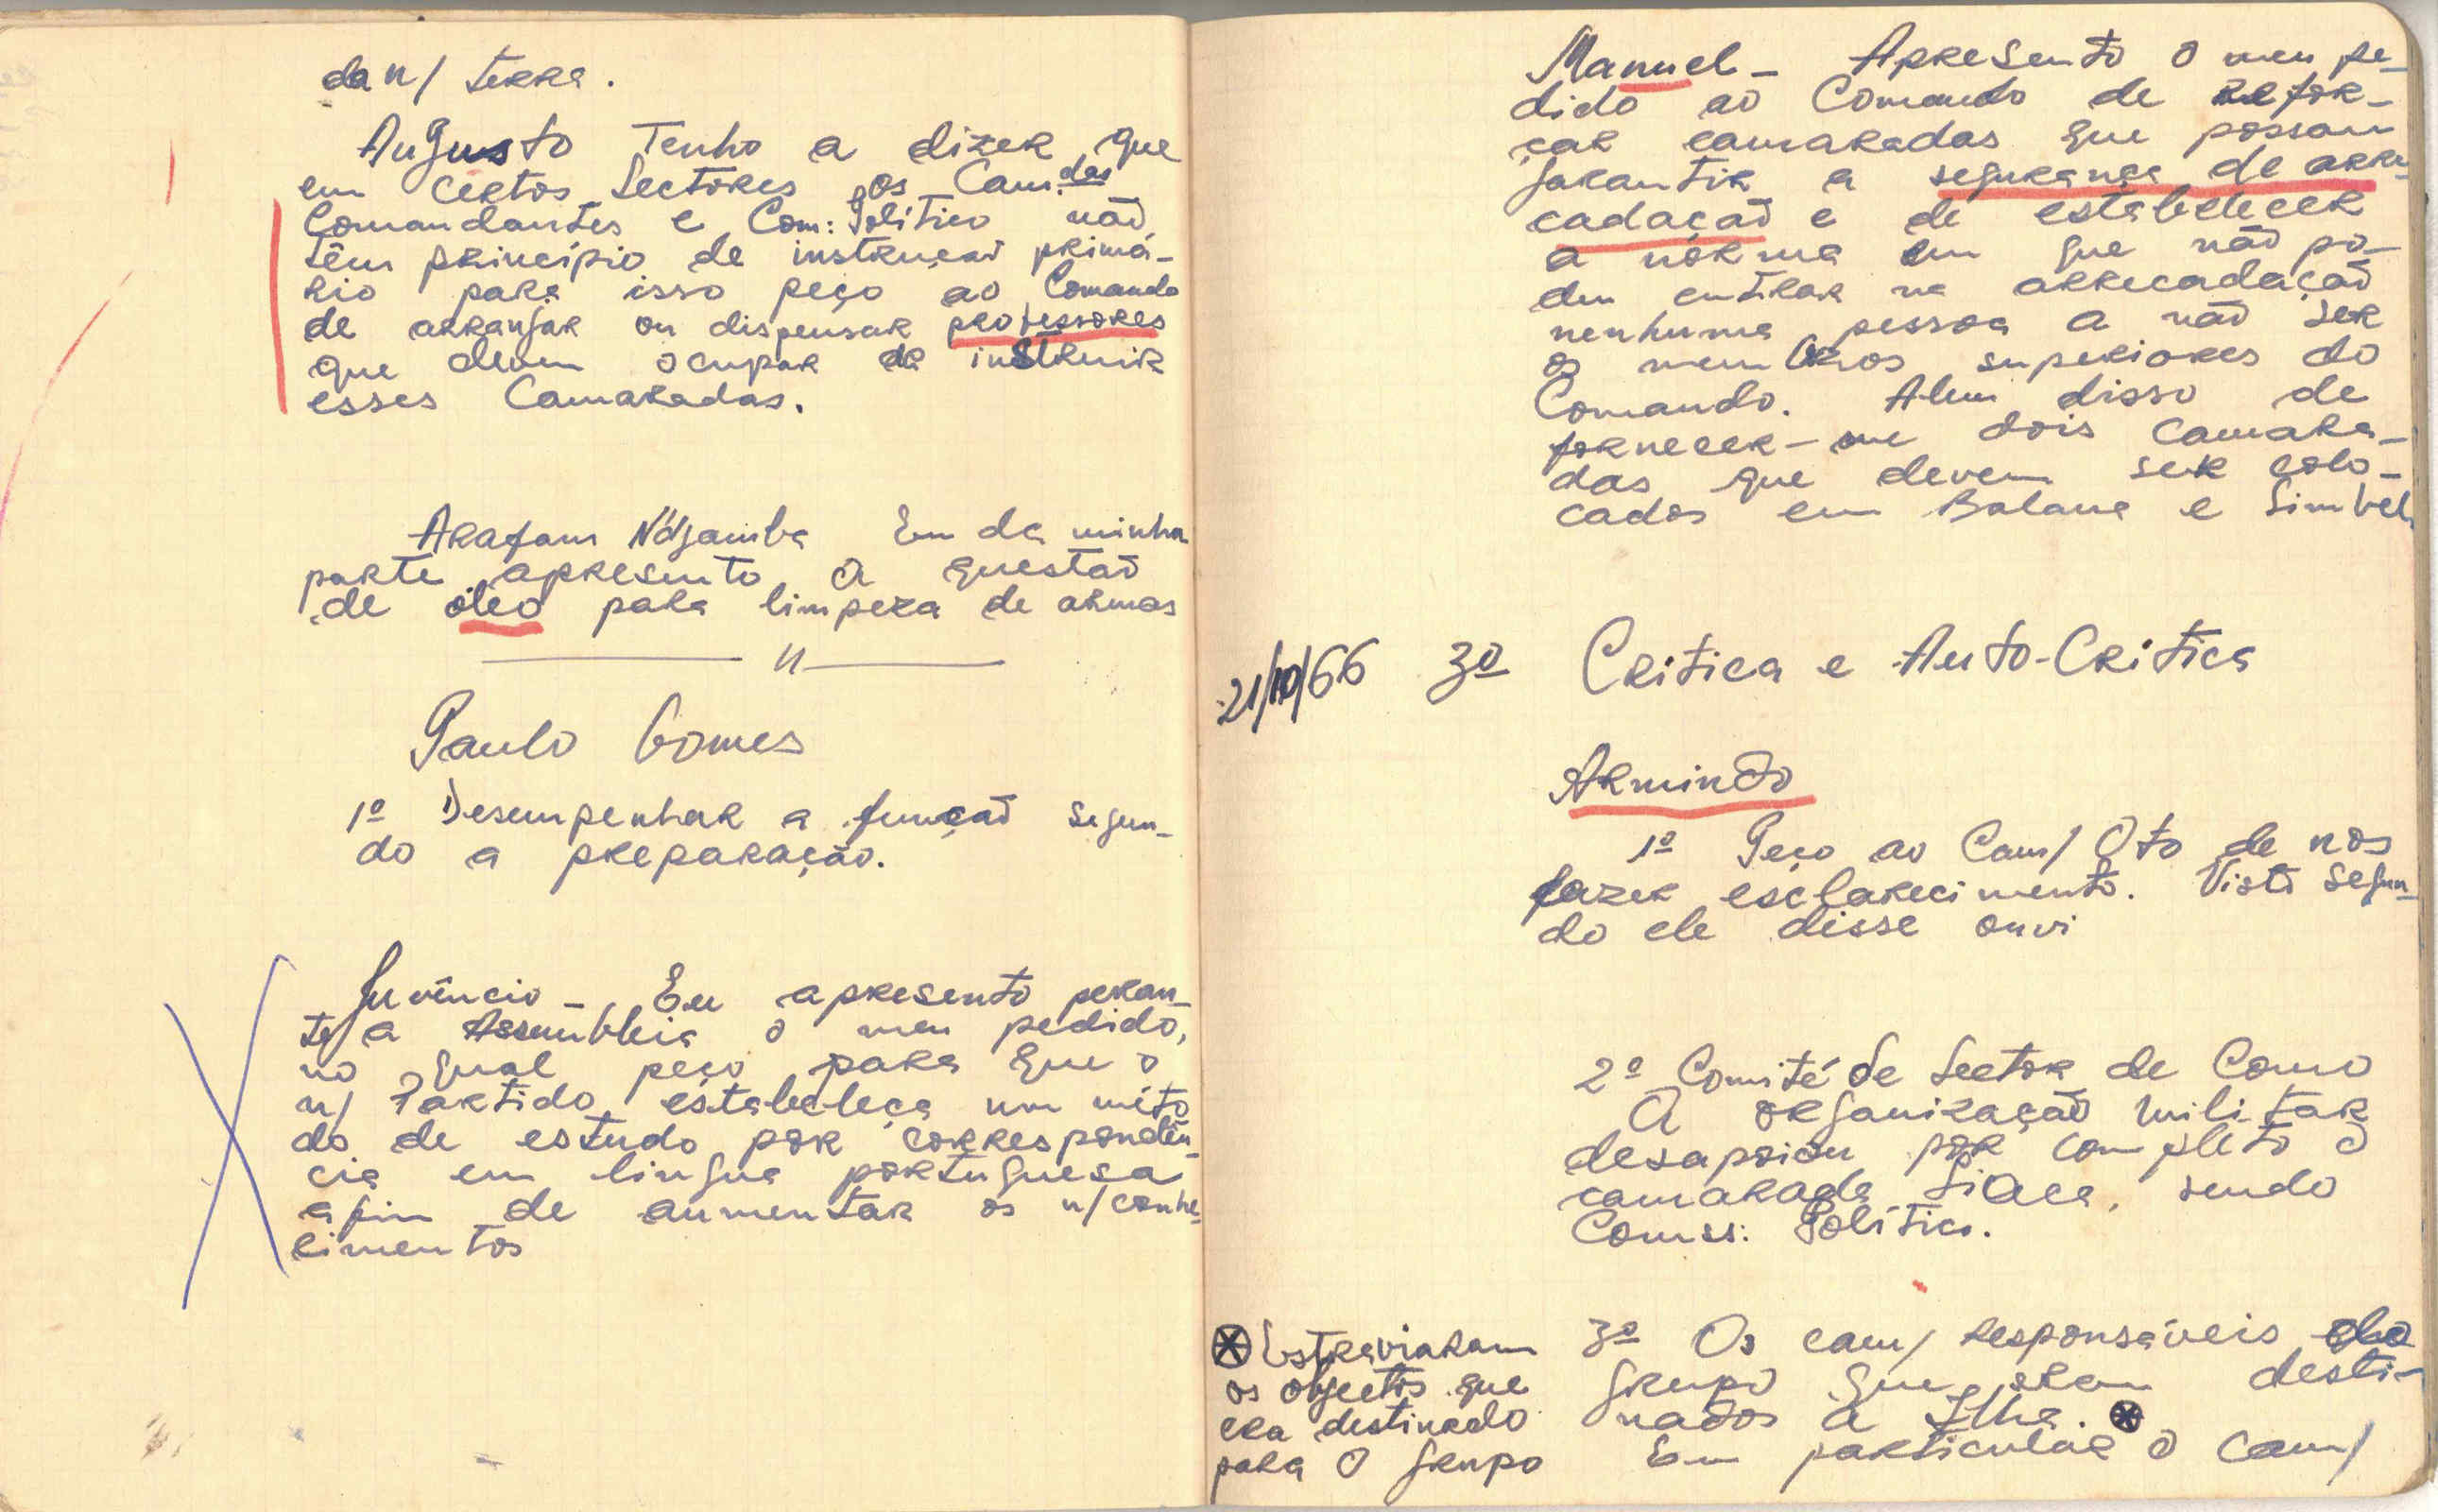 da n/ terra.
Augusto Tenho a dizer que
em certos Sectores, os Cam.das
Comandantes e Com: Político não
têm princípio de instrução primá-
rio para isso peço ao Comando
de arranjar ou dispensar professores
que devem ocupar de instruir
esses Camaradas.
Arafam N'djamba Eu da minha
parte apresento a questão
de óleo para limpeza de armas
— " —
Paulo Gomes
1º Desempenhar a função segun-
do a preparação.
Juvêncio - Eu apresento peran-
te/a Assembleia o meu pedido,
no qual peço para que o
n/ Partido estabeleça um méto
do de estudo por correspondên-
cia em lingua portuguesa
afim de aumentar os n/conhe-
cimentos
Manuel - Apresento o meu pe-
dido ao Comando de refor-
çar camaradas que possam
garantir a segurança de arre-
cadação e de estabelecer
a norma em que não po-
dem entrar na arrecadação
nenhuma pessoa a não ser
os membros superiores do
Comando. Alem disso de
fornecer-me dois camara-
das que devem ser colo-
cados em Balana e Simbel
21/10/66 3º Critica e Auto-Critica
Armindo
1º Peço ao Cam/ Oto de nos
fazer esclarecimento. Visto segun-
do ele disse ouvi
2º Comité de Sector de Como
A organização militar
desapoiou por completo o
camarada, sendo
Comss: Político.
3º Os cam/ responsáveis do
grupo que eram desti-
nados a Ilha. ⊗
Em particular o Cam/
⊗ Estraviaram
os objectos que
era destinado
para o grupo